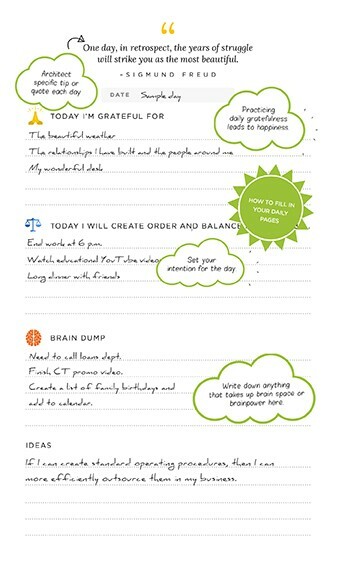 “
One day, in retrospect, the years of struggle
will strike you as the most beautiful.
~SIGMUND FREUD
Architect
specific tip or
quote each day
DATE Sample day
Practicing
daily gratefulness
leads to happiness
TODAY I'M GRATEFUL FOR
The beautiful weather
The relationships I have built and the people around me
My wonderful desk
HOW TO FILL IN
YOUR DAILY
PAGES
TODAY I WILL CREATE ORDER AND BALANCE
End work at 6 p.m.
Watch educational YouTube video
Long dinner with friends
Set your
intention for the day
BRAIN DUMP
Need to call loans dept.
Finish CT promo video.
Create a list of family birthdays and
add to calendar.
Write down anything
that takes up brain space or
brainpower here.
IDEAS
If I can create standard operating procedures, then I can
more efficiently outsource them in my business.